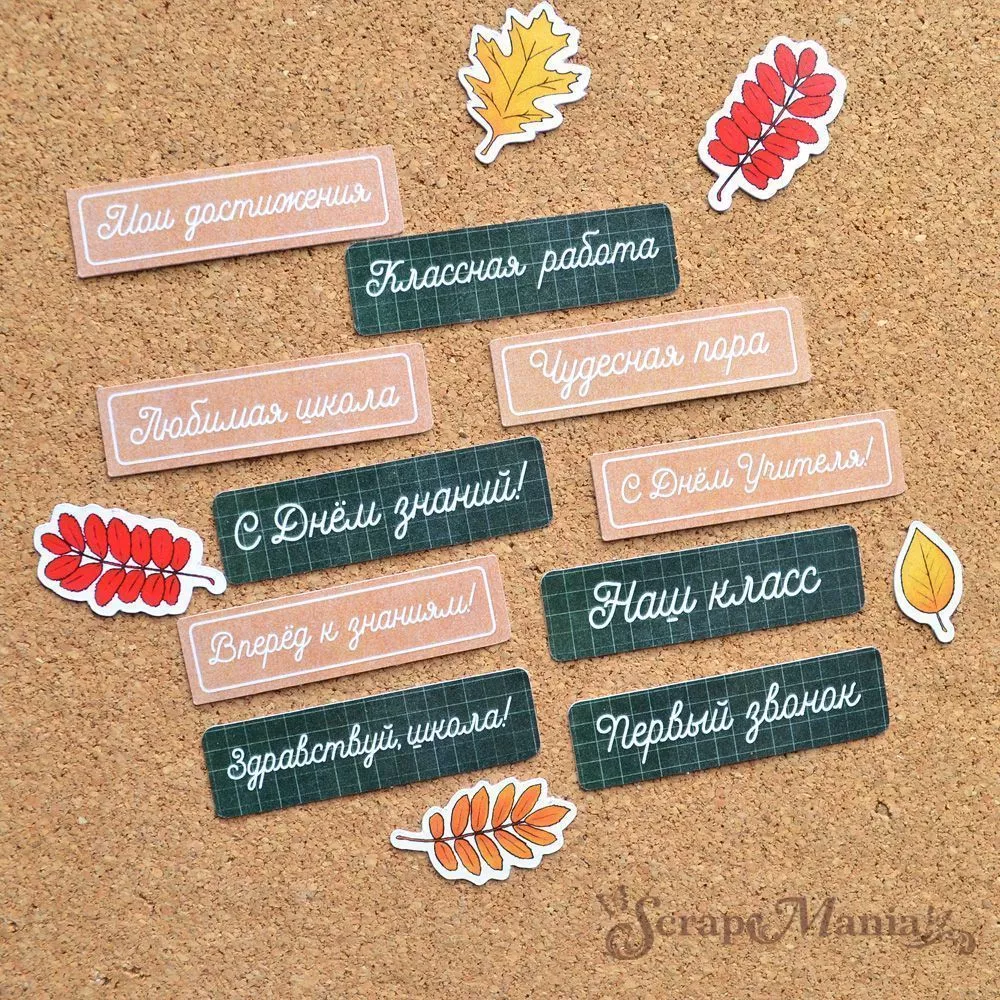 Мои достижения
Классная работа
Чудесная пора
Любимая школа
С Днём Учителя!
С Днём знаний!
Наш класс
Вперёд к знаниям!
Первый звонок
Здравствуй, школа!
ScrapMania